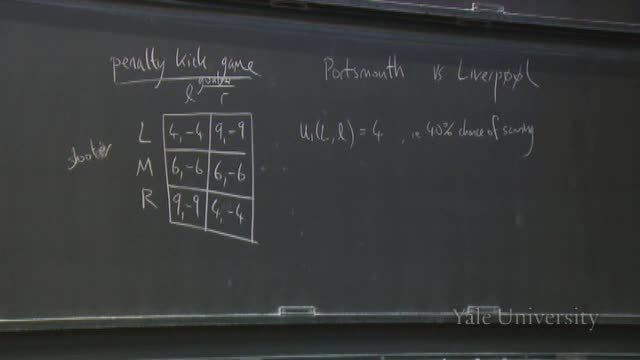 penalty kick game
Portsmouth vs Liverpool
goalie
l r
L 4, -4 9, -9
u1(L, l) = 4 , ie 40% chance of scoring
shooter
M 6, -6 6, -6
R 9, -9 4, -4
Yale University